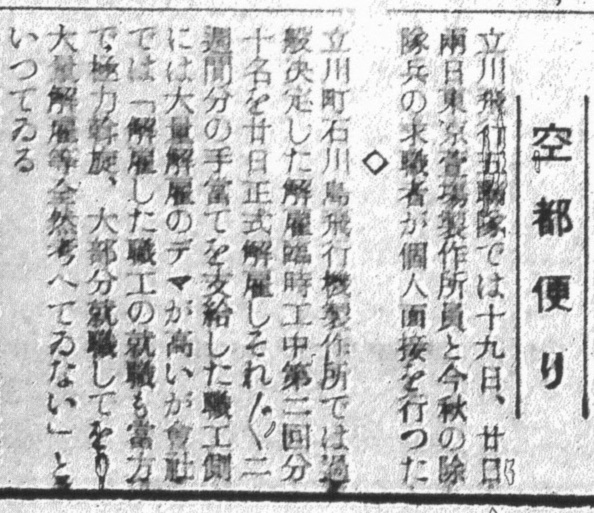 空都便り
立川飛行五聯隊では十九日、廿日
兩日東京萱場製作所員と今秋の除
隊兵の求職者が個人面接を行つた
◇
立川町石川島飛行機製作所では過
般決定した解雇臨時工中第二回分
十名を廿日正式解雇しそれ〴〵二
週間分の手當てを支給した職工側
には大量解雇のデマが高いが會社
では「解雇した職工の就職も當方
で極力斡旋、大部分就職してをり
大量解雇等全然考へてゐない」と
いつてゐる